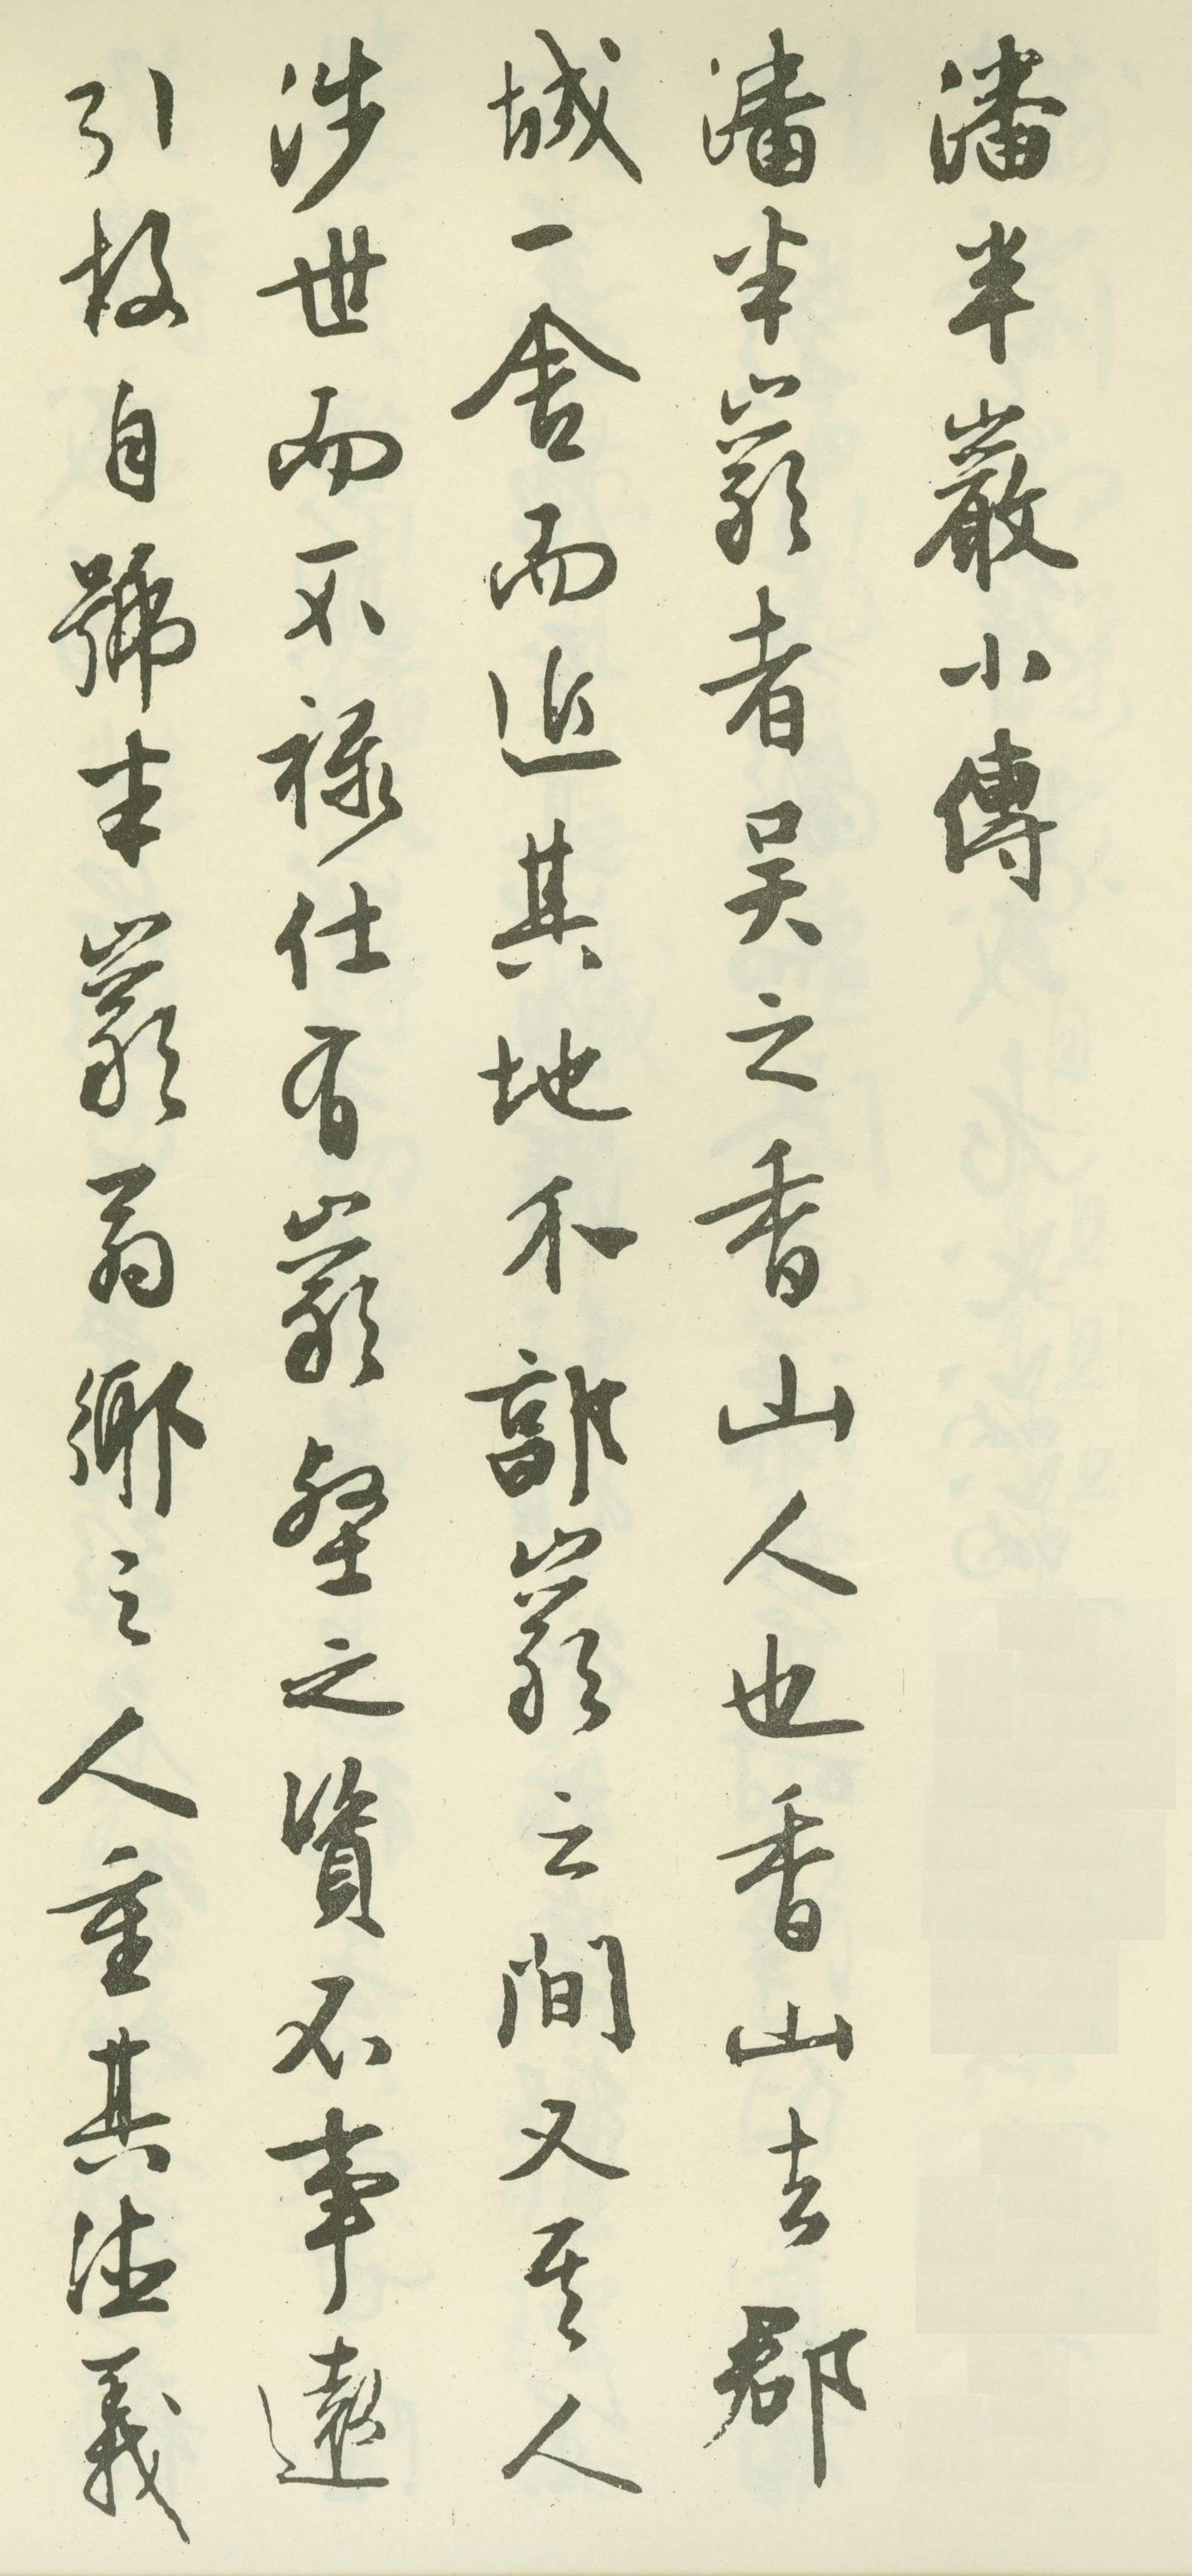 潘半巖小傳
潘半巖者吴之香山人也香山去郡
城一舍而近其地不離巖之間又其人
涉世而不祿仕有巖壑之資不事遠
引故自號半巖翁鄉之人重其德義